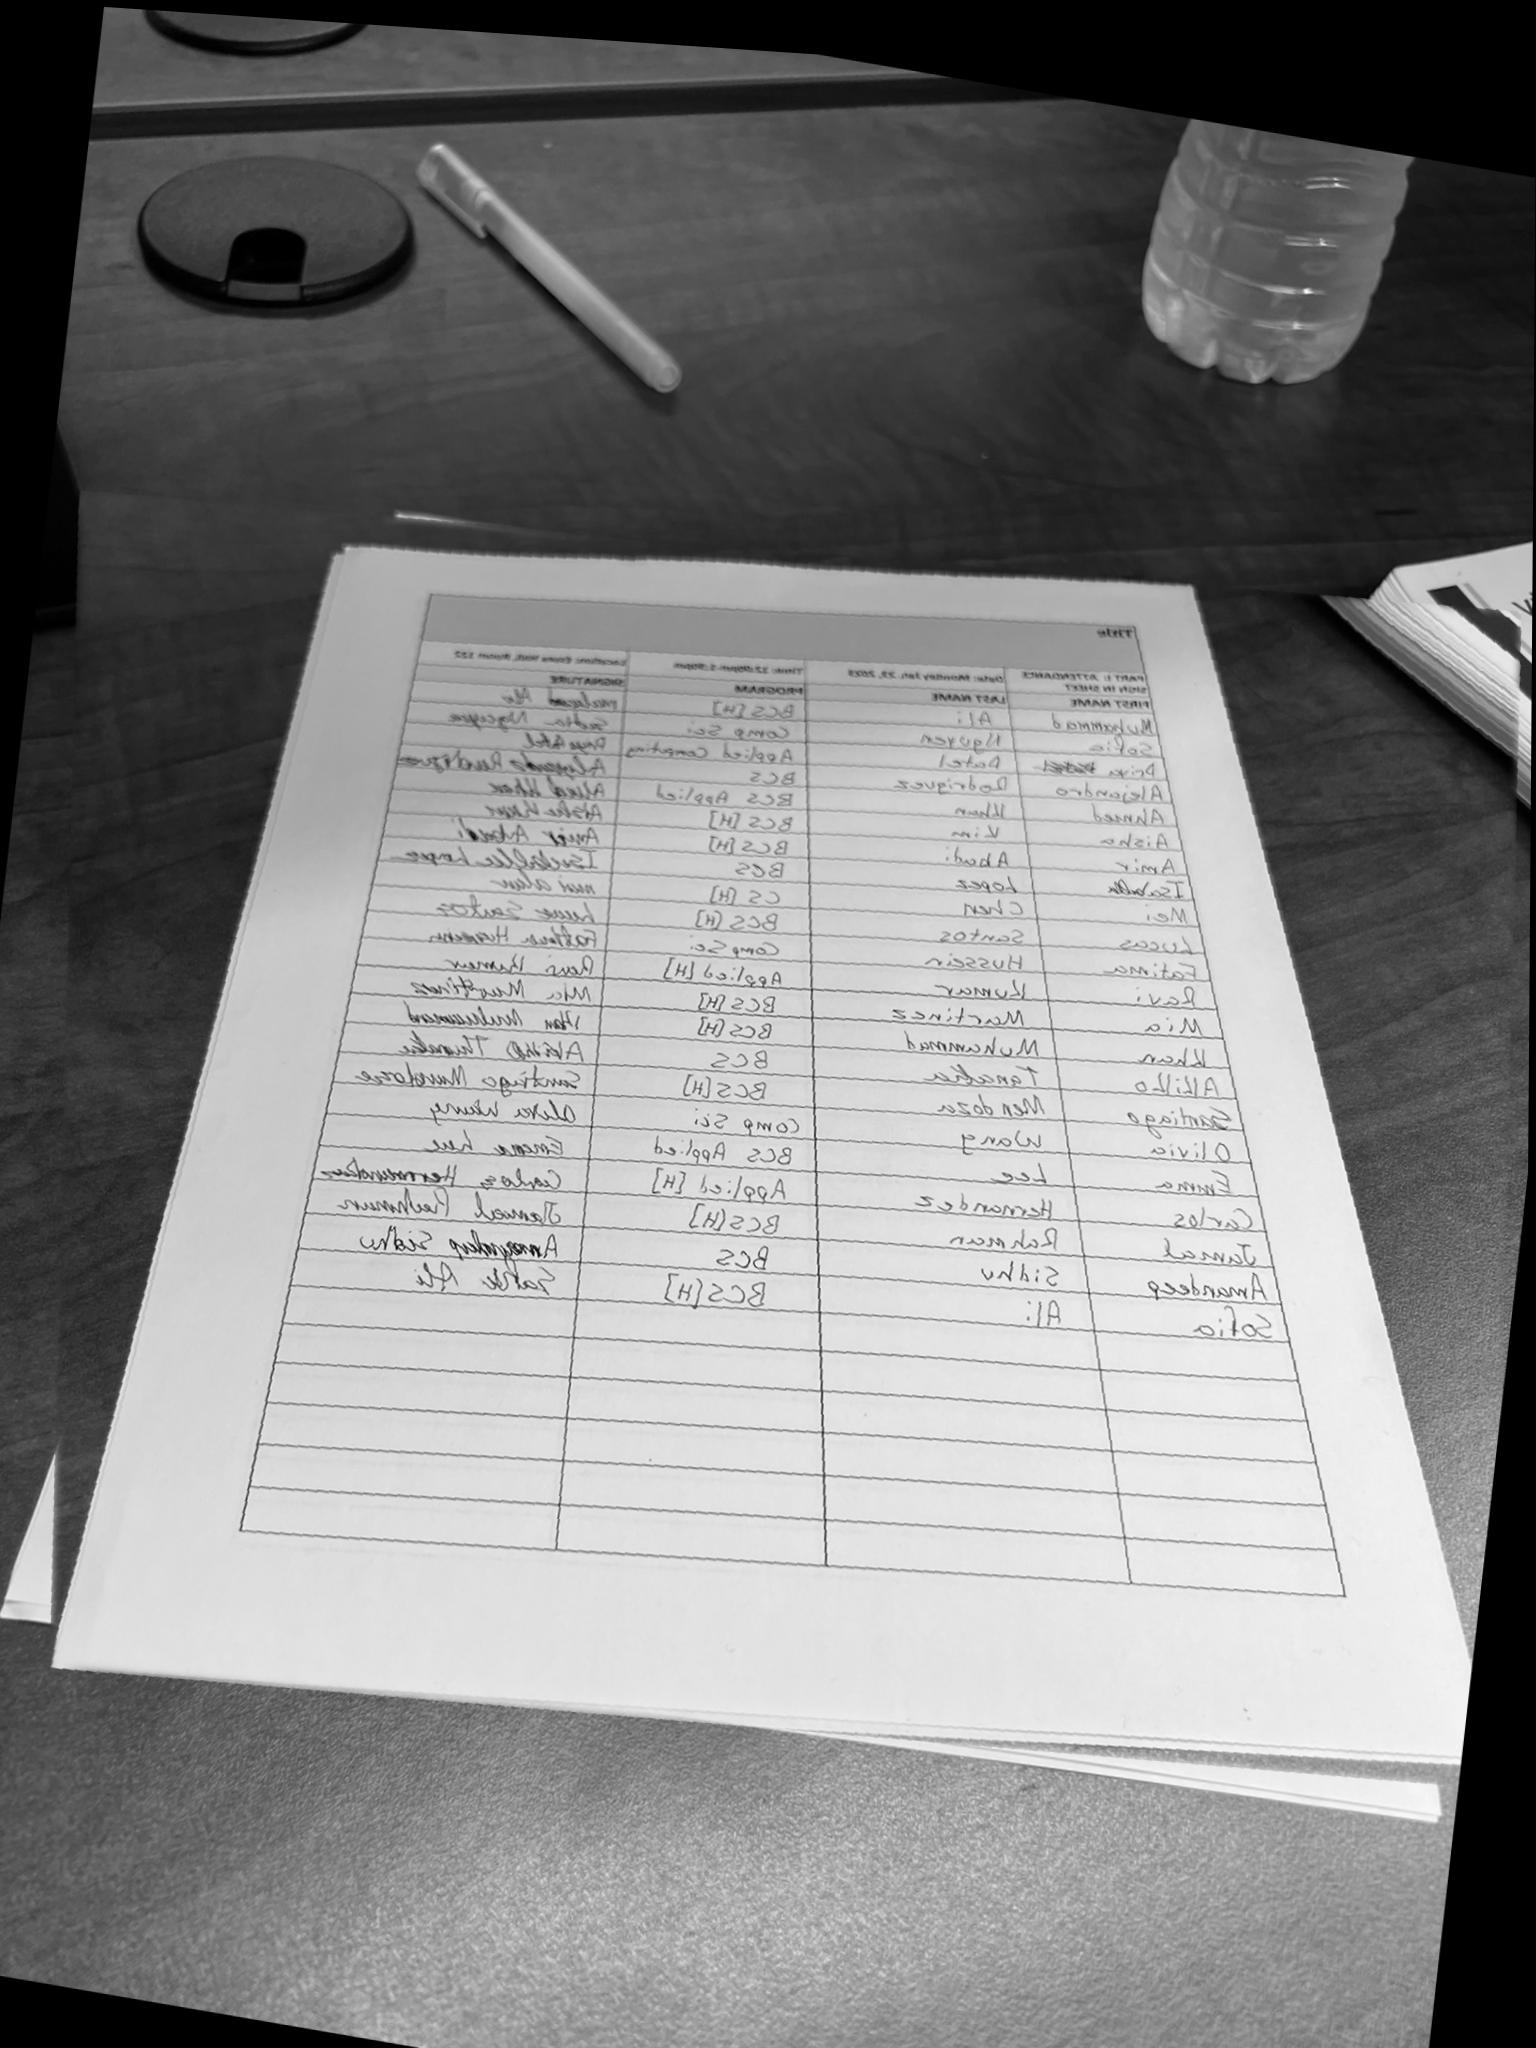 Title
PART 1: ATTENDANCE SIGN IN SHEET Date: Monday Jan. 23, 2023 Time: 12:00pm-1:30pm Location: Essex Hall, Room 122
FIRST NAME LAST NAME PROGRAM SIGNATURE
Muhammad Ali BCS [H]
Sofia Nguyen Comp Sci Sofia Nguyen
Priya Patel Applied Computing
Alejandro Rodriguez BCS Alejandro Rodriguez
Ahmed Khan BCS Applied Ahmed Khan
Aisha Kim BCS [H]
Amir Abadi BCS [H] Amir Abadi
Isabella Lopez BCS
Mei Chen CS [H]
Lucas Santos BCS [H] Santos
Fatima Hussein Comp Sci
Ravi Kumar Applied [H] Ravi Kumar
Mia Martinez BCS [H] Mia Martinez
Khan Muhammad BCS [H] Khan Muhammad
Akiko Tanaka BCS
Santiago Mendoza BCS [H] Santiago
Olivia Wang Comp Sci
Emma Lee BCS Applied
Carlos Hernandez Applied [H] Carlos Hernandez
Jamal Rahman BCS [H] Jamal
Amandeep Sidhu BCS Sidhu
Sofia Ali BCS [H] Ali